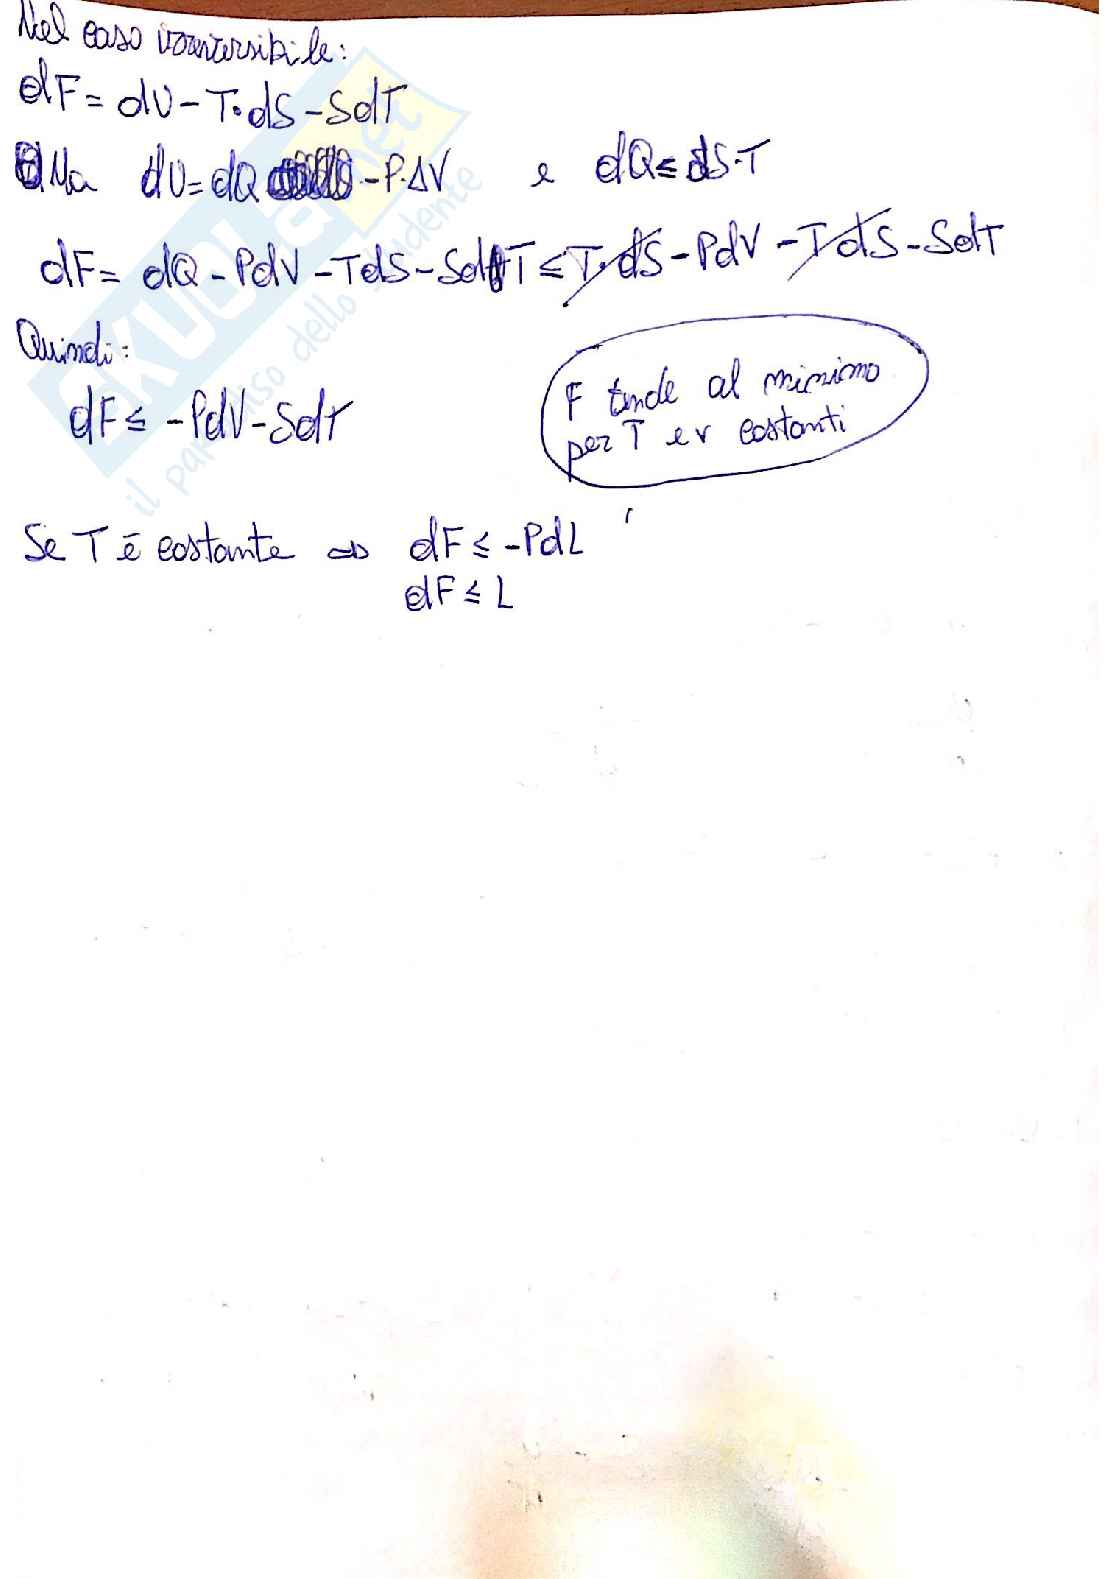 Nel caso irreversibile:
dF = dU - T·dS - SdT
Ma dU = dQ - P·ΔV e dQ ≤ dS·T
dF = dQ - PdV - TdS - SdT ≤ T·dS - PdV - TdS - SdT
Quindi:
dF ≤ -PdV - SdT
F tende al minimo
per T e v costanti
Se T è costante ⇒ dF ≤ -PdL
dF ≤ L
SKUOLA.net
il paradiso dello studente